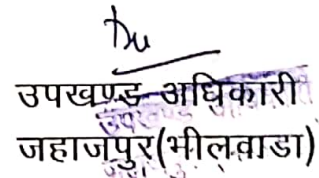 उपखण्ड अधिकारी
जहाजपुर(भीलवाडा)